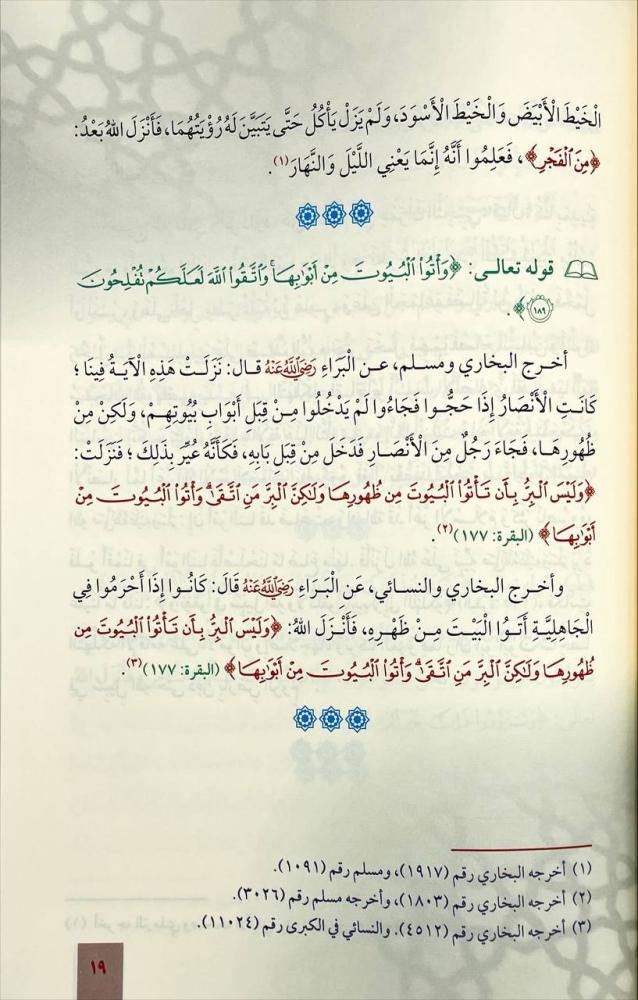 الْخَيْطَ الْأَبْيَضَ وَالْخَيْطَ الْأَسْوَدَ، وَلَمْ يَزَلْ يَأْكُلُ حَتَّى يَتَبَيَّنَ لَهُ رُؤْيَتُهُمَا، فَأَنْزَلَ اللهُ بَعْدُ:
﴿مِنَ ٱلْفَجْرِ﴾، فَعَلِمُوا أَنَّهُ إِنَّمَا يَعْنِي اللَّيْلَ وَالنَّهَارَ(١).
قوله تعالى: ﴿وَأْتُوا۟ ٱلْبُيُوتَ مِنْ أَبْوَٰبِهَا ۚ وَٱتَّقُوا۟ ٱللَّهَ لَعَلَّكُمْ تُفْلِحُونَ
١٨٩﴾.
أخرج البخاري ومسلم، عن الْبَرَاءِ رَضِيَ اللَّهُ عَنْهُ قال: نَزَلَتْ هَذِهِ الْآيَةُ فِينَا؛
كَانَتِ الْأَنْصَارُ إِذَا حَجُّوا فَجَاءُوا لَمْ يَدْخُلُوا مِنْ قِبَلِ أَبْوَابِ بُيُوتِهِمْ، وَلَكِنْ مِنْ
ظُهُورِهَا، فَجَاءَ رَجُلٌ مِنَ الْأَنْصَارِ فَدَخَلَ مِنْ قِبَلِ بَابِهِ، فَكَأَنَّهُ عُيِّرَ بِذَلِكَ؛ فَنَزَلَتْ:
﴿وَلَيْسَ ٱلْبِرُّ بِأَن تَأْتُوا۟ ٱلْبُيُوتَ مِن ظُهُورِهَا وَلَٰكِنَّ ٱلْبِرَّ مَنِ ٱتَّقَىٰ ۗ وَأْتُوا۟ ٱلْبُيُوتَ مِنْ
أَبْوَٰبِهَا﴾ (البقرة: ١٧٧)(٢).
وأخرج البخاري والنسائي، عَنِ الْبَرَاءِ رَضِيَ اللَّهُ عَنْهُ قَالَ: كَانُوا إِذَا أَحْرَمُوا فِي
الْجَاهِلِيَّةِ أَتَوُا الْبَيْتَ مِنْ ظَهْرِهِ، فَأَنْزَلَ اللهُ: ﴿وَلَيْسَ ٱلْبِرُّ بِأَن تَأْتُوا۟ ٱلْبُيُوتَ مِن
ظُهُورِهَا وَلَٰكِنَّ ٱلْبِرَّ مَنِ ٱتَّقَىٰ ۗ وَأْتُوا۟ ٱلْبُيُوتَ مِنْ أَبْوَٰبِهَا﴾ (البقرة: ١٧٧)(٣).
(١) أخرجه البخاري رقم (١٩١٧)، ومسلم رقم (١٠٩١).
(٢) أخرجه البخاري رقم (١٨٠٣)، وأخرجه مسلم رقم (٣٠٢٦).
(٣) أخرجه البخاري رقم (٤٥١٢). والنسائي في الكبرى رقم (١١٠٢٤).
١٩